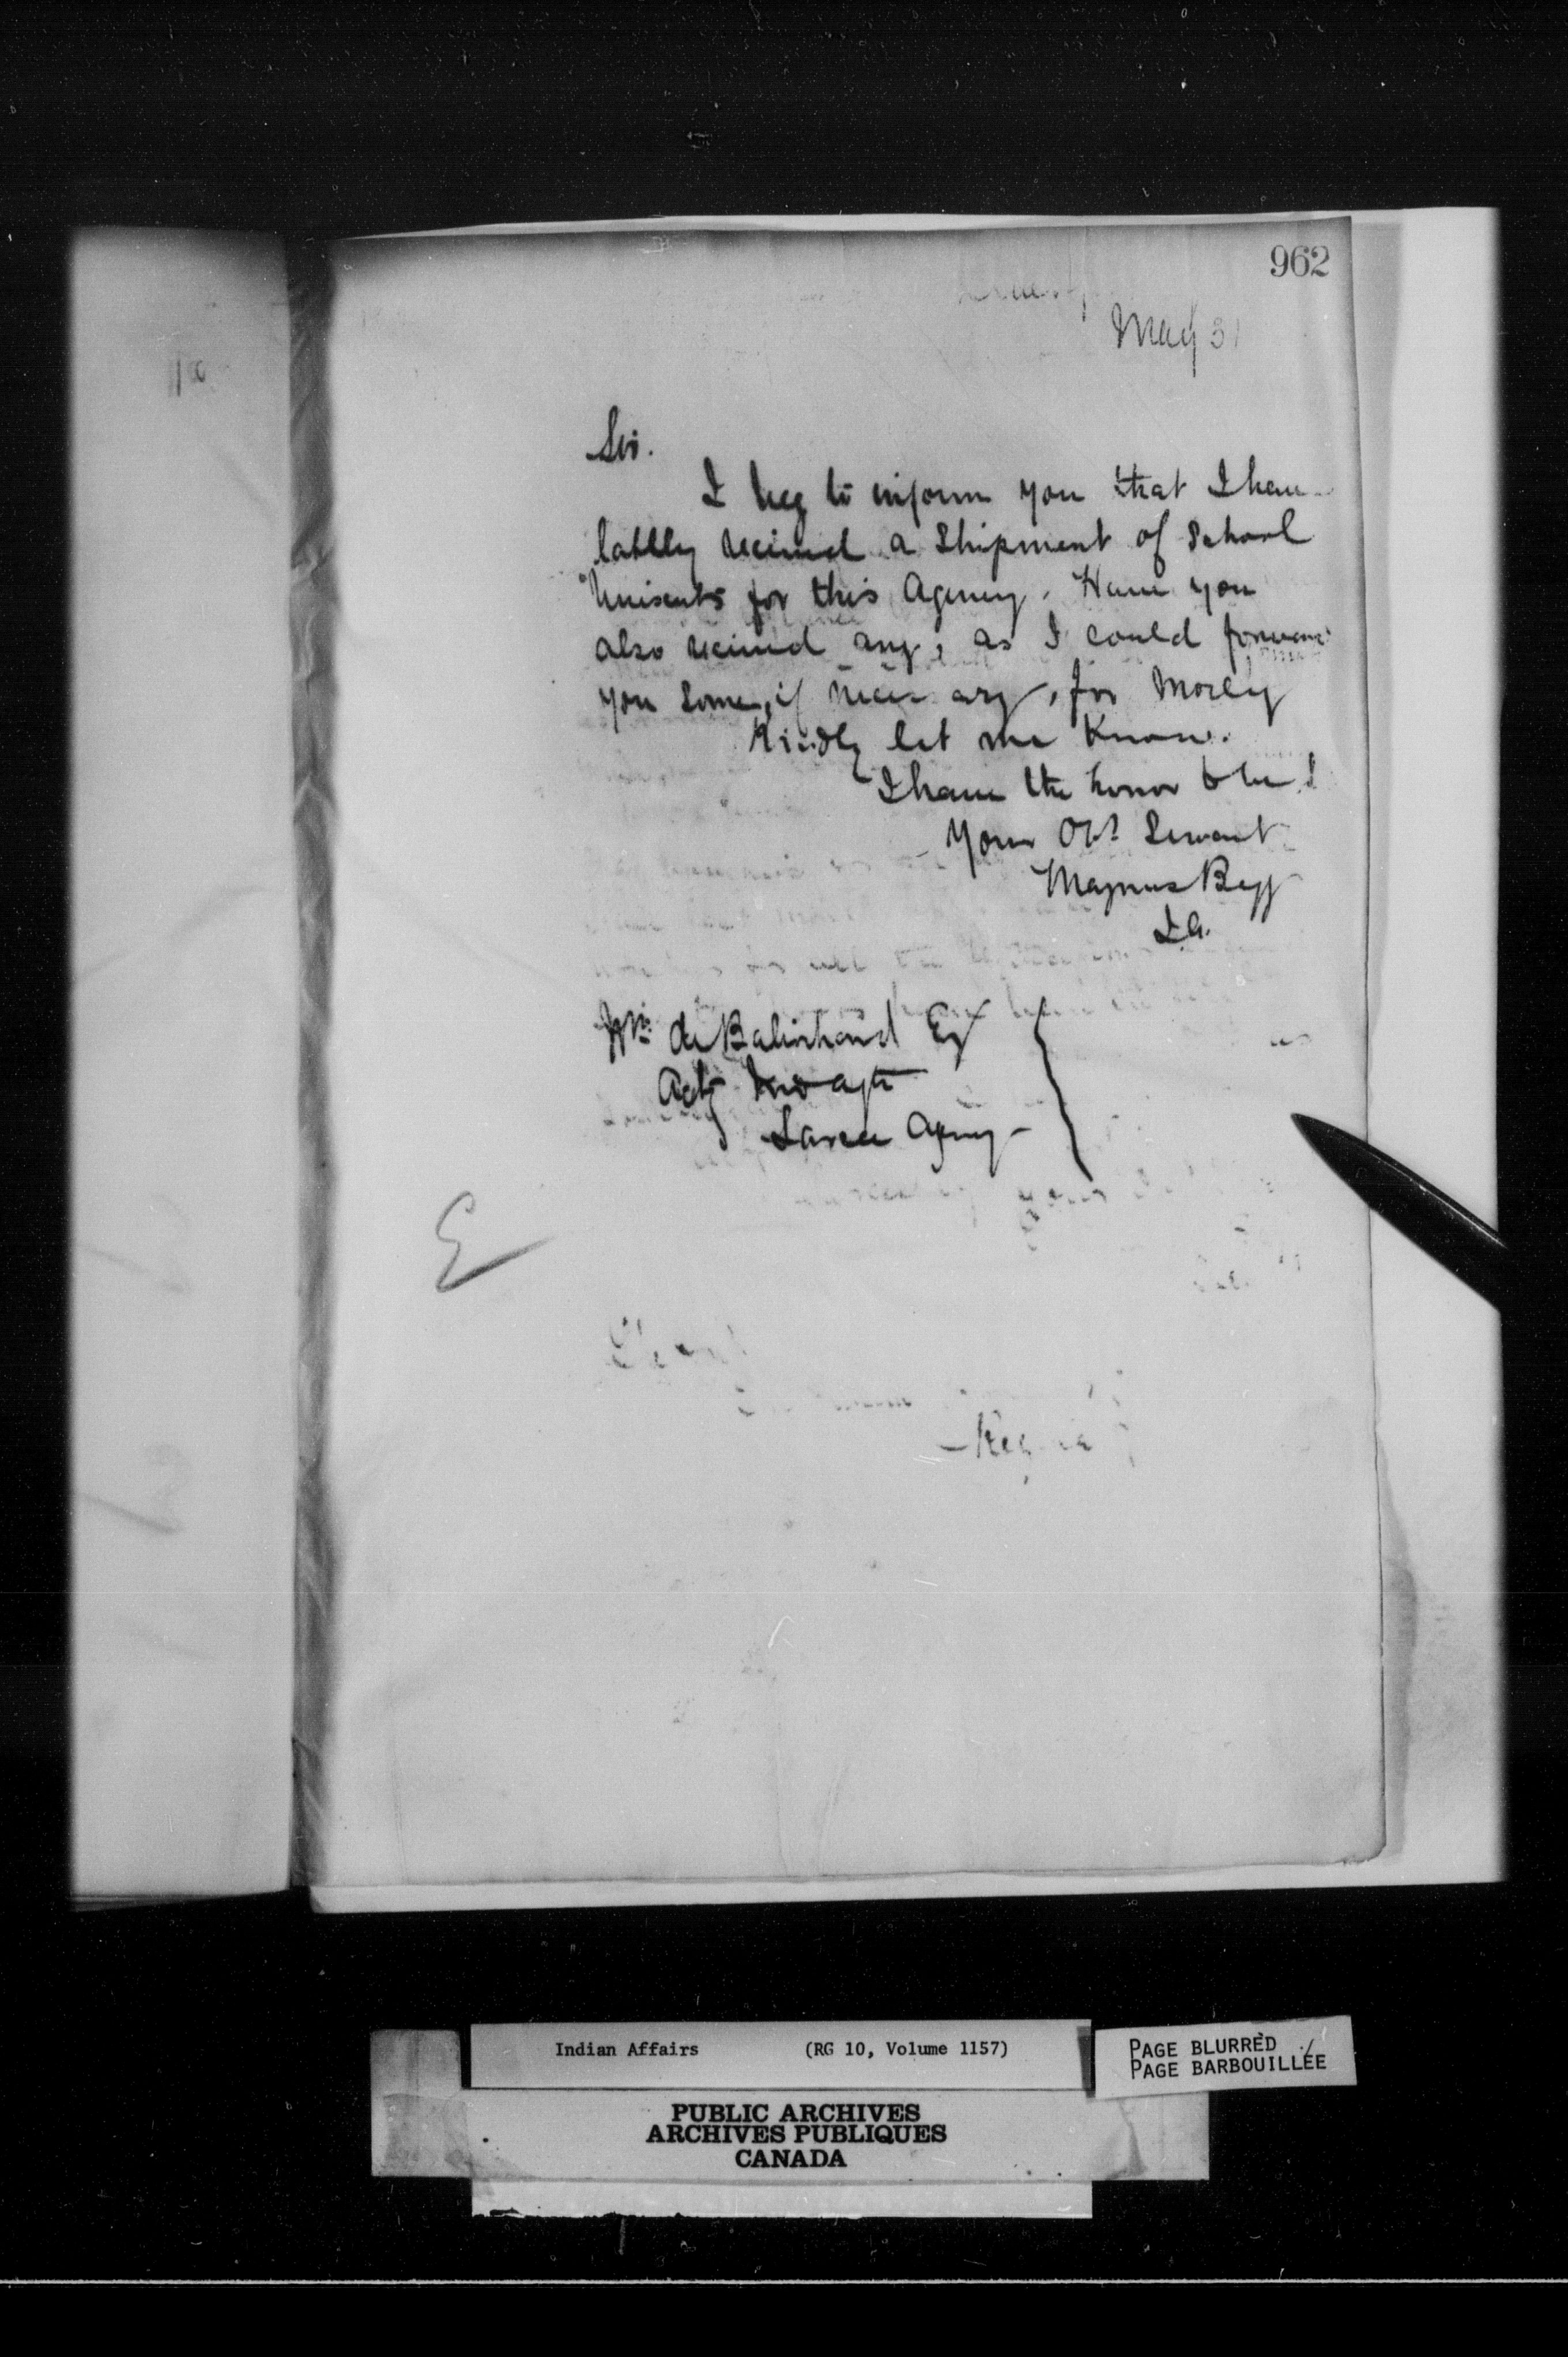 962
May 31
Sir.
I beg to inform you that I have
lately received a Shipment of School
Biscuits for this Agency. Have you
also received any, as I could forward
you some, if necessary, for Morley
Kindly let me know.
I have the honor to be
Your Obt Servant
Magnus Begg
I.A.
Wm de Balinhard Esq
Actg Ind Agt
Sarcee Agency
E
Indian Affairs (RG 10, Volume 1157)
PAGE BLURRED
PAGE BARBOUILLÉE
PUBLIC ARCHIVES
ARCHIVES PUBLIQUES
CANADA